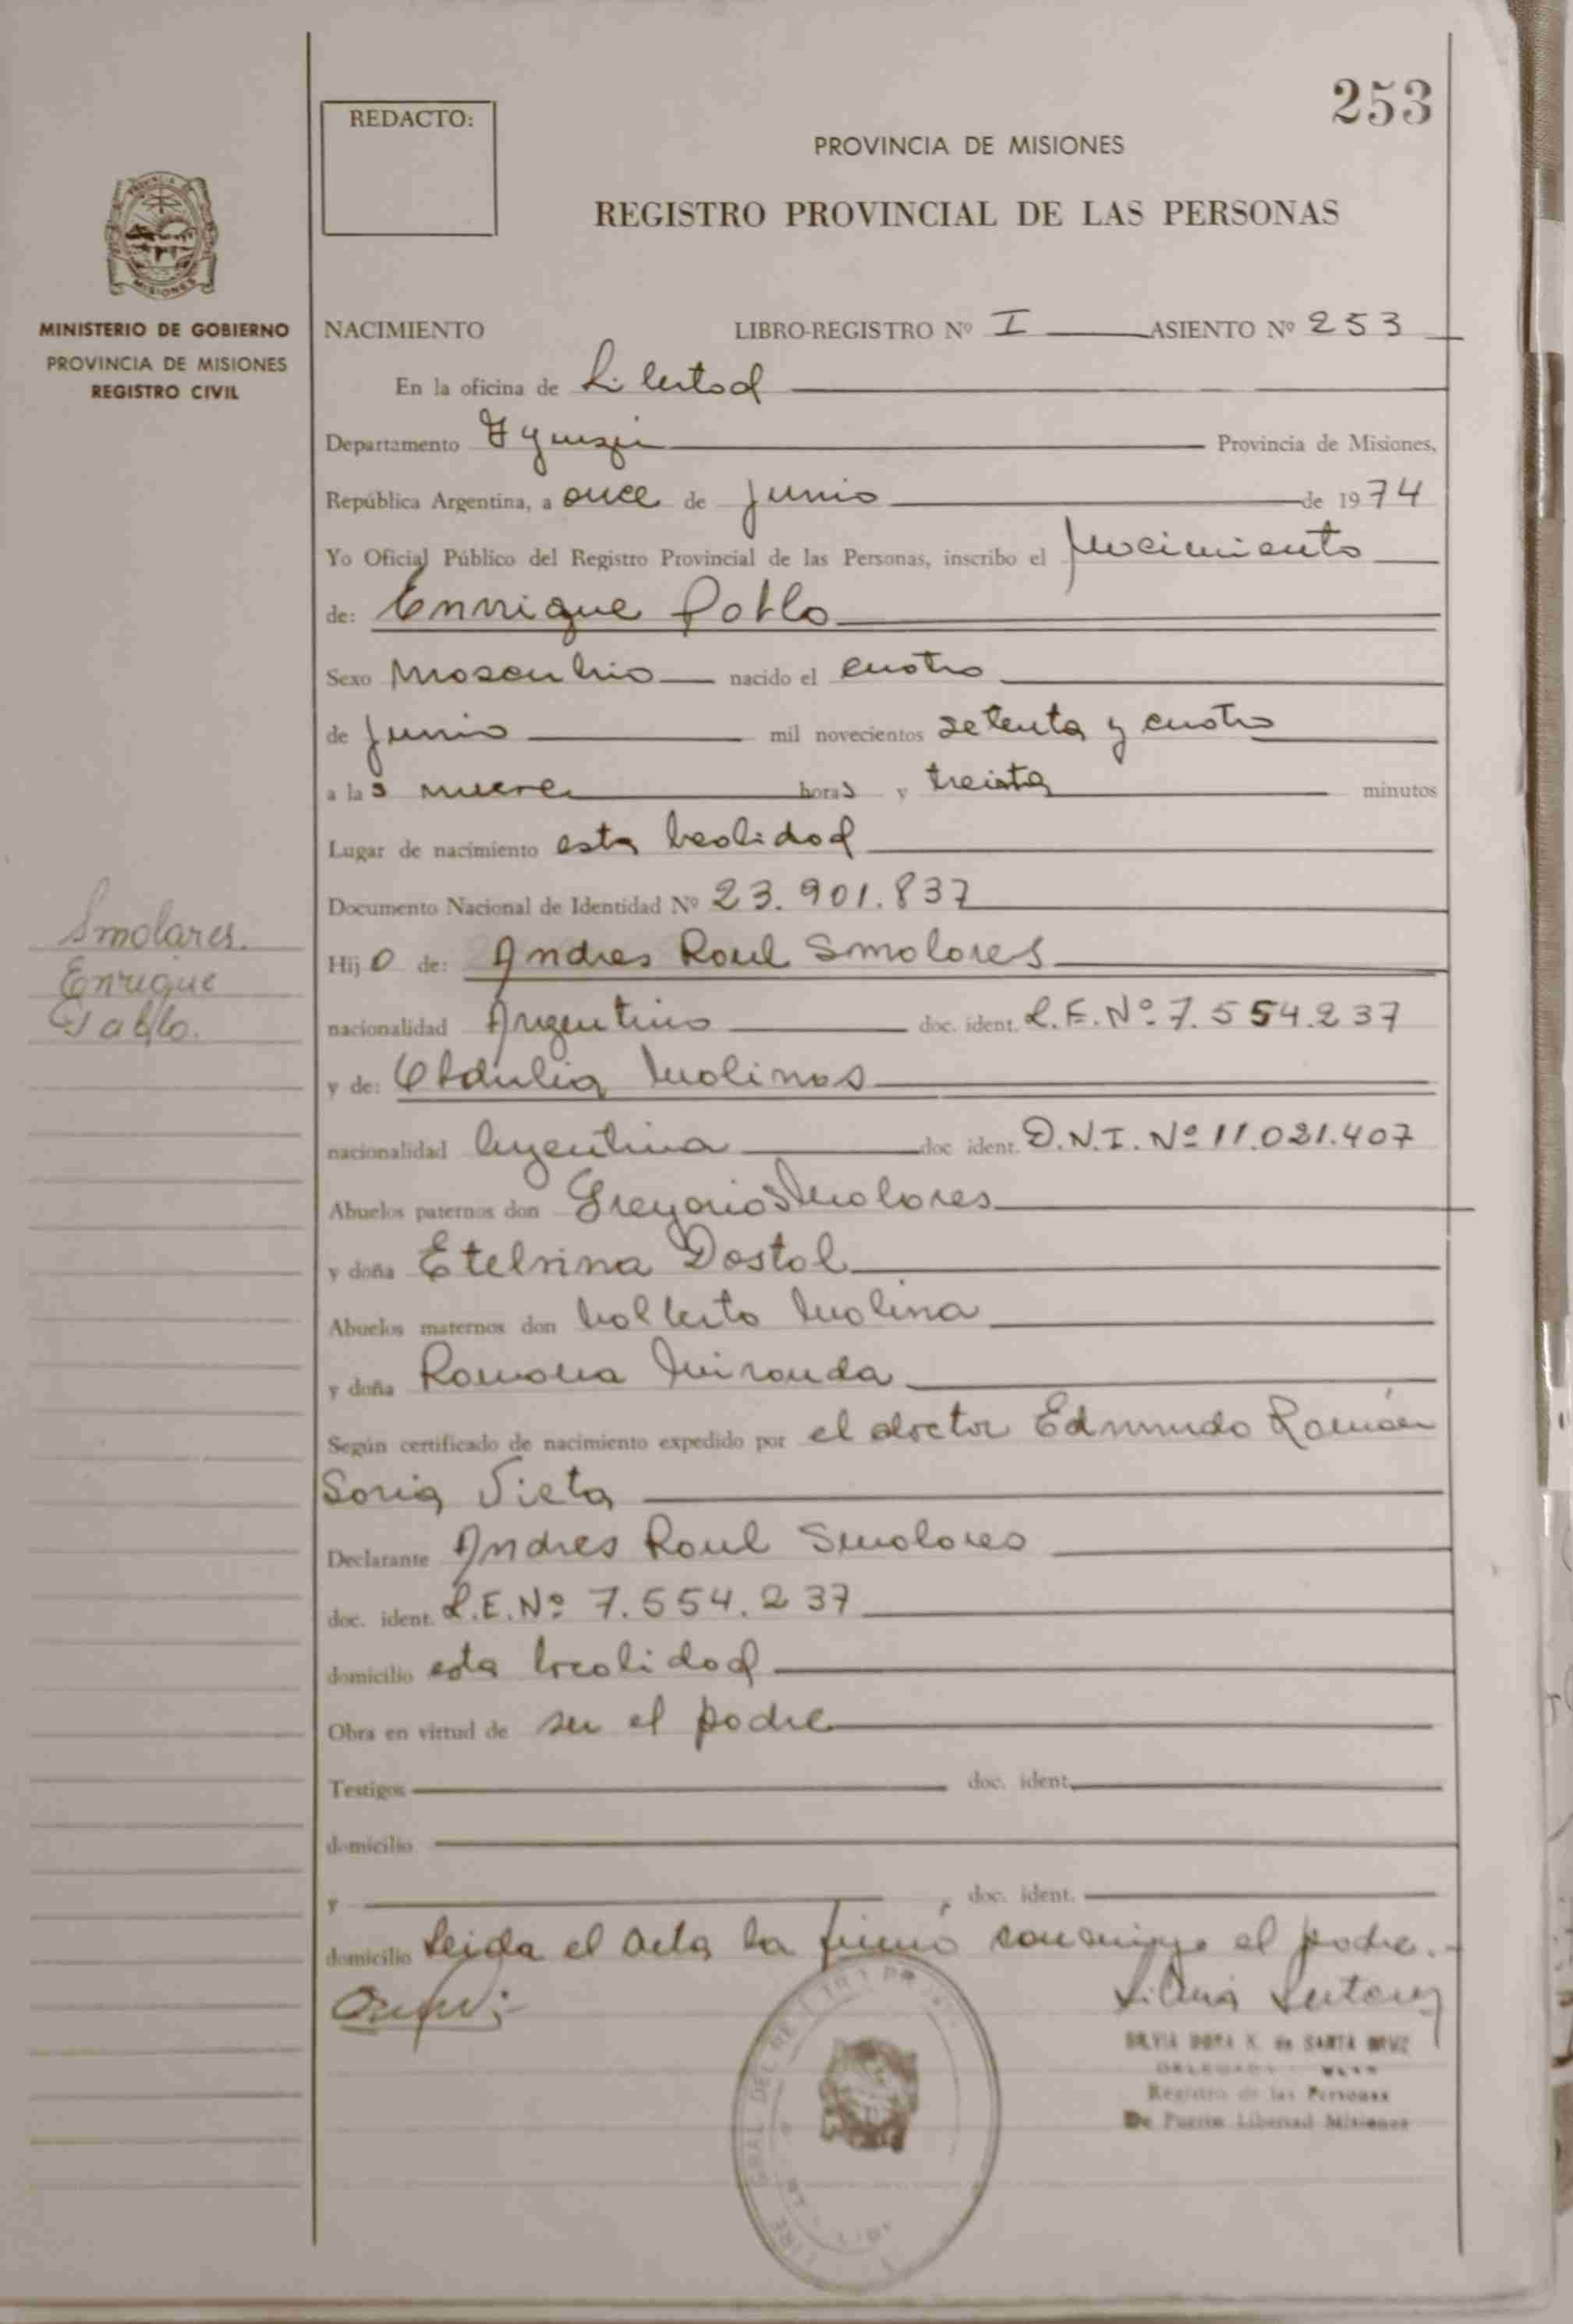 253
REDACTO:
PROVINCIA DE MISIONES
REGISTRO PROVINCIAL DE LAS PERSONAS
MISIONES
MINISTERIO DE GOBIERNO
PROVINCIA DE MISIONES
REGISTRO CIVIL
NACIMIENTO LIBRO-REGISTRO Nº I ASIENTO Nº 253
En la oficina de Libertad
Departamento Iguazú Provincia de Misiones,
República Argentina, a once de junio de 1974
Yo Oficial Público del Registro Provincial de las Personas, inscribo el nacimiento
de: Enrrique Pablo
Sexo masculino nacido el cuatro
de junio mil novecientos setenta y cuatro
a las nueve horas y treinta minutos
Lugar de nacimiento esta localidad
Documento Nacional de Identidad Nº 23.901.837
Smolares.
Enrique
Pablo.
Hijo de: Andres Raul Smolares
nacionalidad Argentino doc. ident. L.E. Nº 7.554.237
y de: Obdulia Molinas
nacionalidad Argentina doc ident. D.N.I. Nº 11.021.407
Abuelos paternos don Gregorio Smolares
y doña Etelvina Dostal
Abuelos maternos don Molina
y doña Ramona Miranda
Según certificado de nacimiento expedido por el doctor Edmundo Román
Soria Vieta
Declarante Andres Raul Smolares
doc. ident. L.E. Nº 7.554.237
domicilio esta localidad
Obra en virtud de ser el padre
Testigos doc. ident.
domicilio
y , doc. ident.
domicilio Leida el acta la firmó conmigo el padre.
SILVIA DORA K. de SANTA CRUZ
Registro de las Personas
De Puerto Libertad Misiones